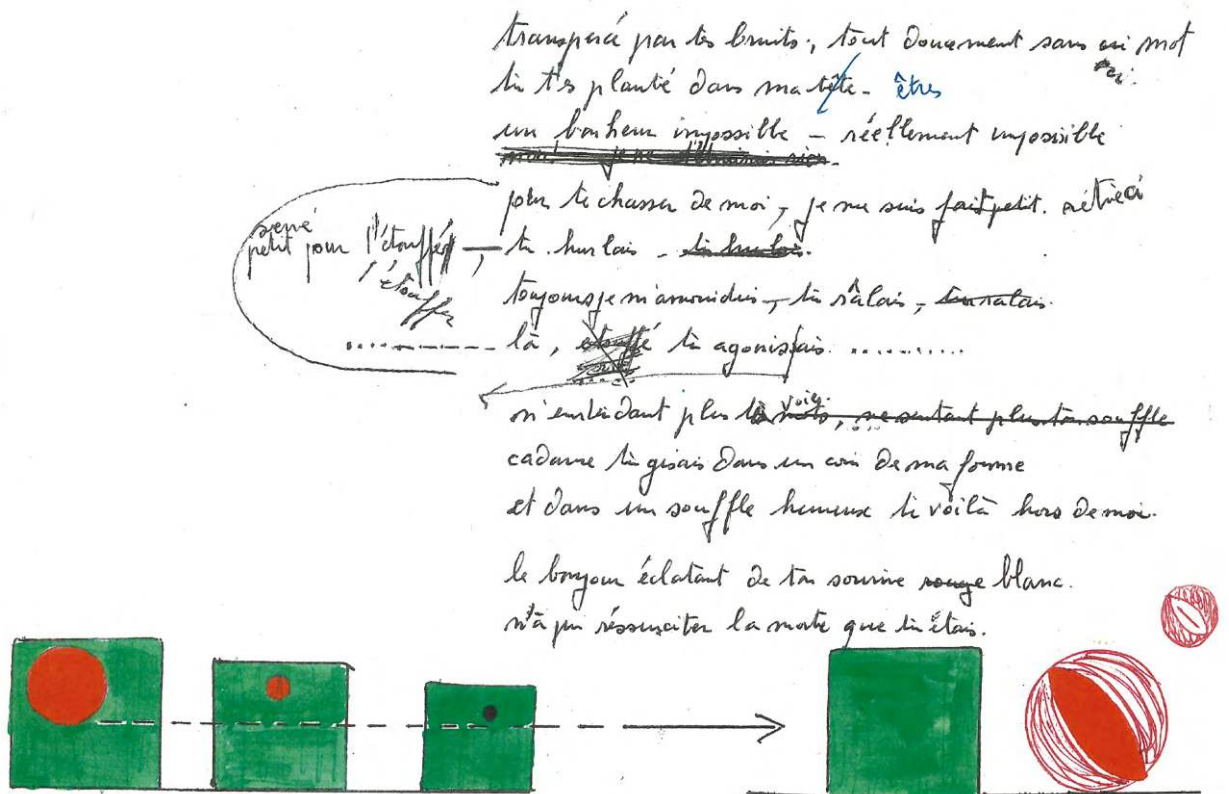 transpercé par tes bruits, tout doucement sans un mot
ni
tu t'es planté dans ma tête - êtres
un bonheur impossible - réellement impossible
pour te chasser de moi, je me suis fait petit. rétréci
serré
petit pour l'étouffer
l'étouffer
tu hurlais - tu hurlais.
toujours je m'amoindris, tu râlais, tu ralais.
là, étouffé tu agonissais
n'entendant plus ta voix mots, ne sentant plus ton souffle
cadavre tu gisais dans un coin de ma forme
et dans un souffle heureux te voilà hors de moi.
le bonjour éclatant de ton sourire rouge blanc.
n'a pu réssusciter la morte que tu étais.